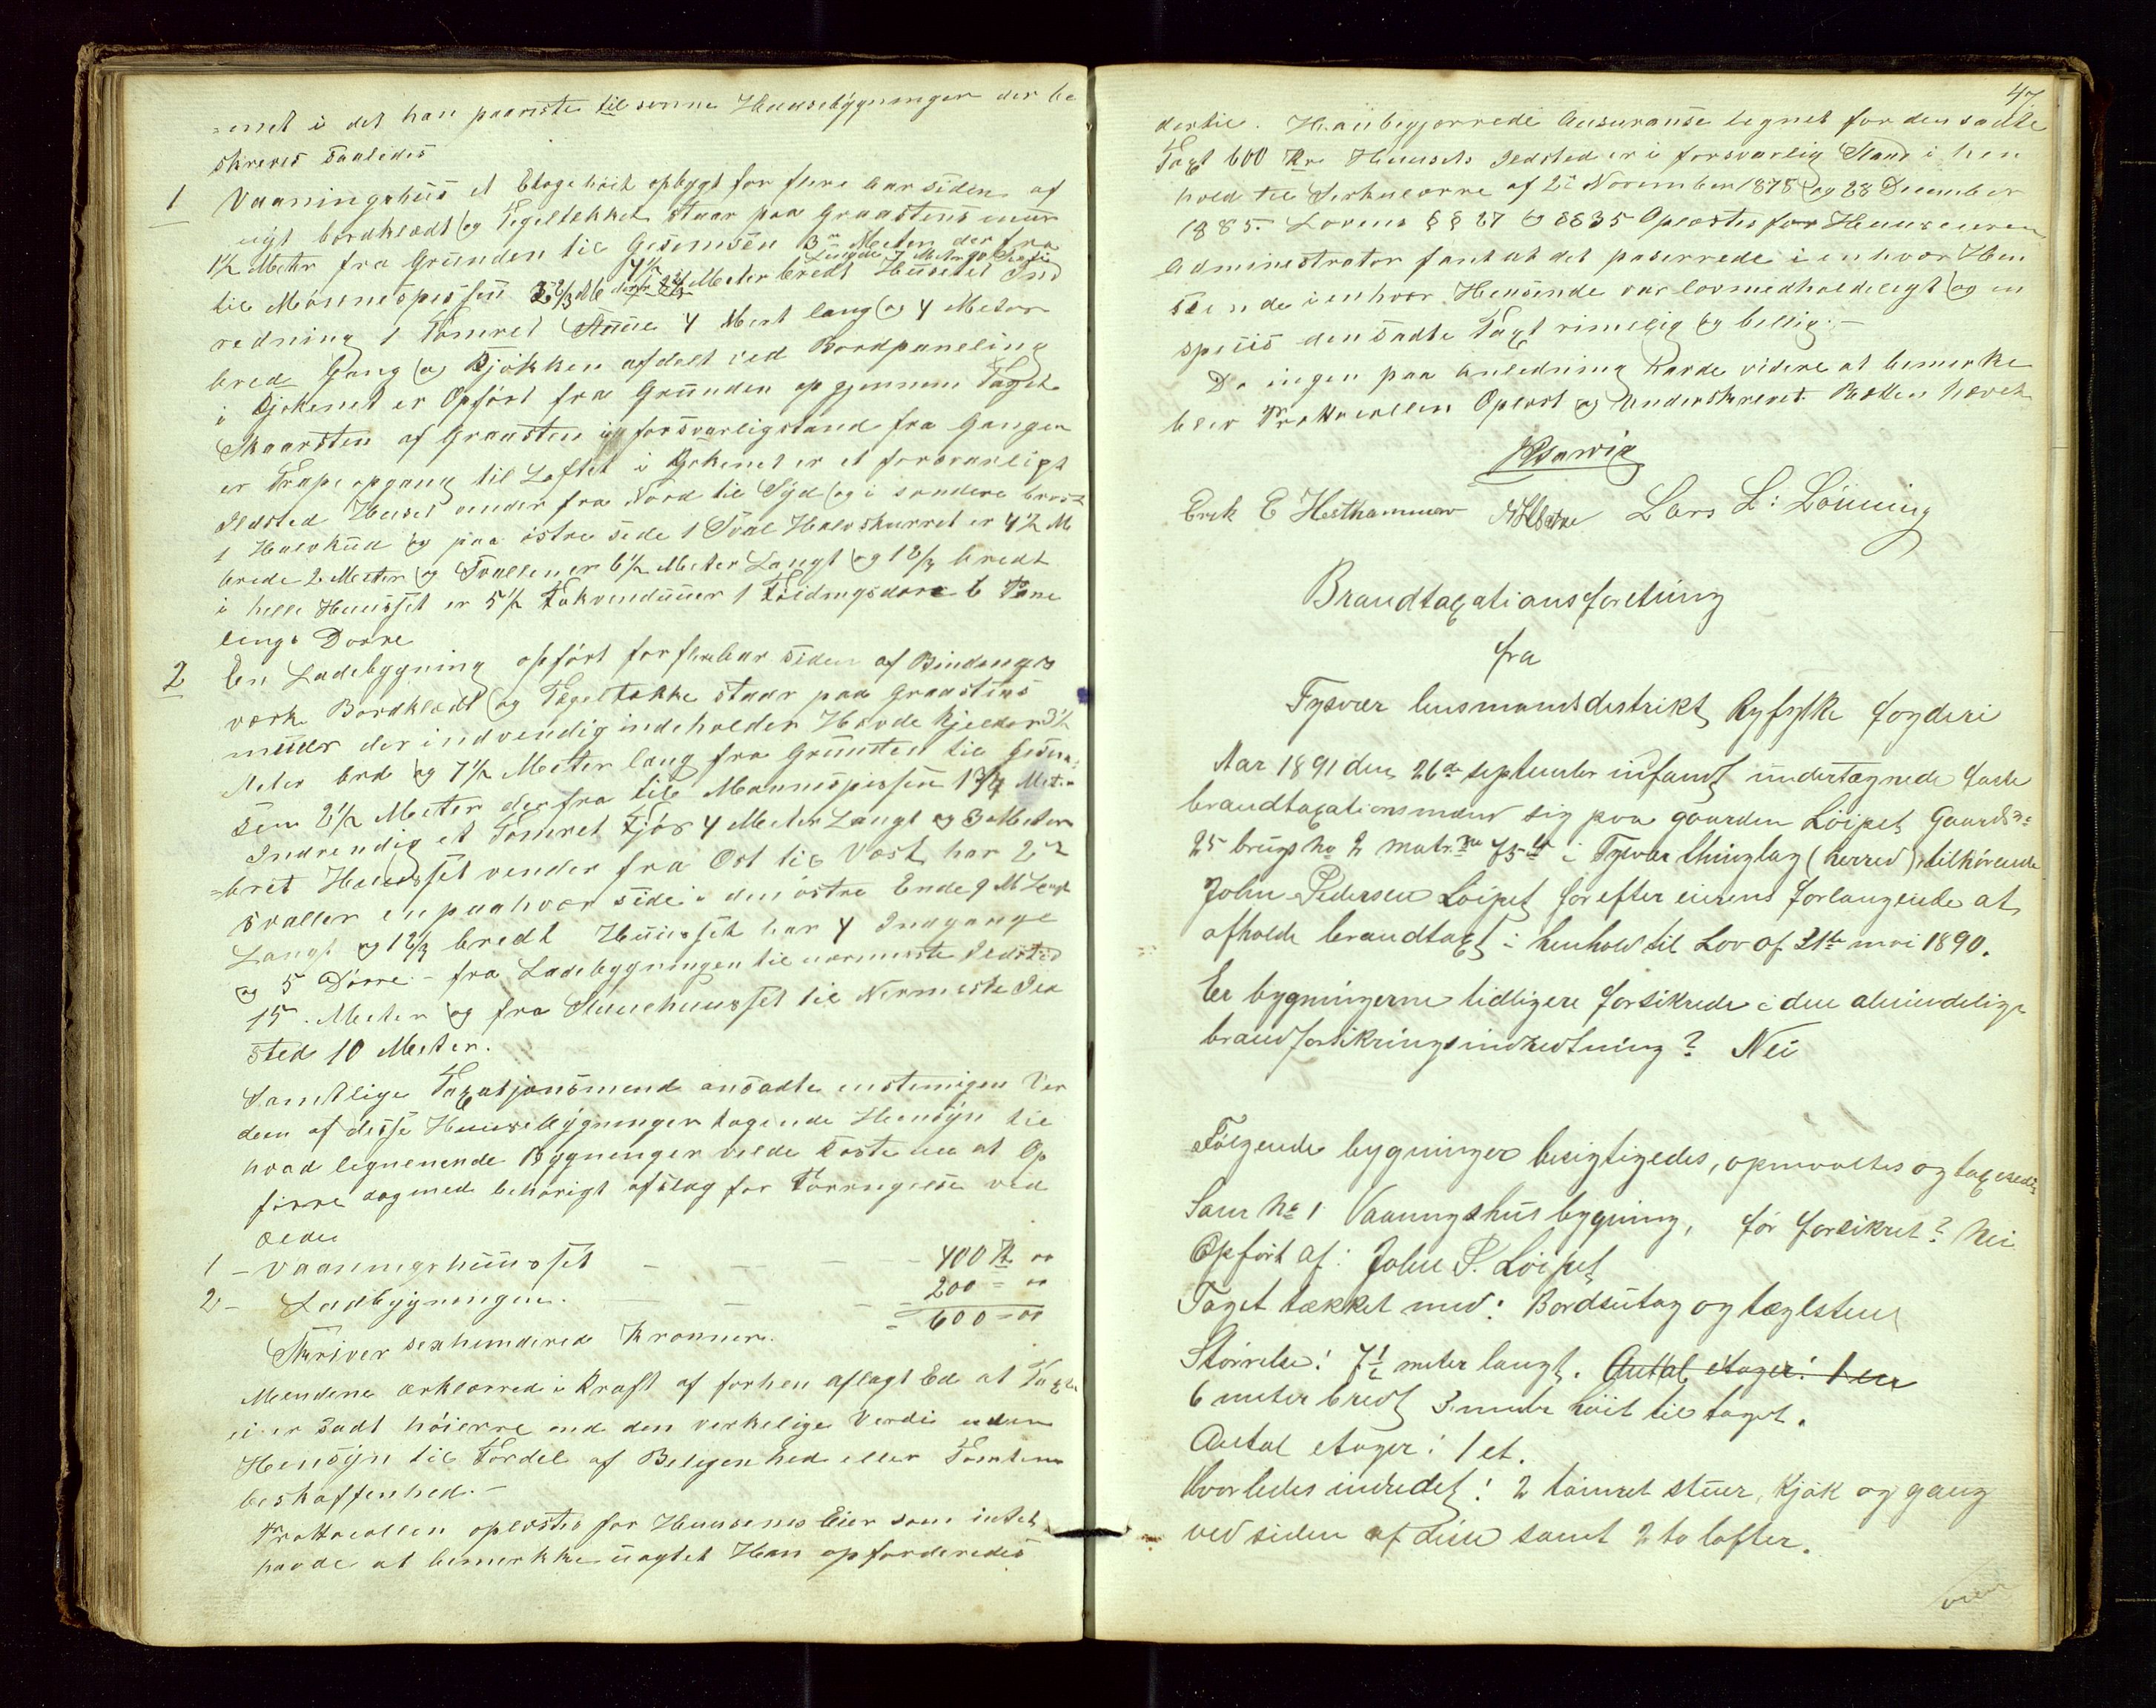 -erret i det han paaviste til senne Huusebygninger der be
skreves saaledes
1 Vaaningshus et Etage höit opbygt for flere Aar siden af
nyt bordklædt og Tegeltekket staar paa Graastens muur
1½ Meter fra Grunden til Gesemsen 3 Meter der fra
til Mönnespissen Meter bredt Huuset Ind
redning 1 Tömret Stuue 4 Mert lang og 4 Meter
bred Gang og Kjökken afdelt ved Bordpaneling
i Kjökenet er Opfört fra Grunden op gjennem Taget
Skaarsten af Graasten i forsvarligstand fra Gangen
er Trape opgang til Loftet i Kjökenet er et forsvarligt
Ildsted Huset vender fra Nord til Syd og i söndere
1 Halvkud og paa östre side 1 Sval Halvskurret er 4½ M
brede 2 Meeter og Svallen er 6½ Meeter Langt og 1 2/3 bredt
i helle Huusset er 5½ Fakvenduuer 1 6 Pane
lings Dorre
2 En Ladebygning opfört for flere Aar siden af Bindings
værk Bordklædt og Tegeltække staar paa Graastens
muur der indvendig indeholder Høvde Kjelder 3½
Meter bred og 7½ Meeter lang fra Grunden til Gesem
sen 2½ Meeter der fra til Mønnespissen 1 3/4 Meter
Indvendig et Tömret Fjös 4 Meeter Langt og 3 Meter
-bret Huusset vender fra Öst til Væst har 2
svaller en paa hver side i den östre Ende 9 M
Langt og 1 2/3 bredt Huusset har 4 Indgange
og 5 Dörre - fra Ladebygningen til nærmeste Ildsted
15 Meeter og fra Stuuehuusset til Nermeste Ild
sted 10 Meeter.
Samtlige Taxatjonsmend ansadte enstemigen Ver
dien af disse Huusebygninger tagende Hensyn til
hvad lignenende Bygninger vilde koste nu at Op
före dog med behörigt afslag for Förringelse ved
ælde
1 - Vaaningshuusset - - - 400 Kr. 00
2 - Ladbygningen. - - - 200 = 00
= 600 = 00
Skriver sexhunderede Kronner.
Mendene erklærrede i Kraft af forhen aflagt Ed at Taxten
ei er sadt höierre end den verkelige Verdi uden
Hensyn til Fordel af Beleyenhed eller Tomtens
beskaffenhed. -
Prottocollen oplæstes for Huusenes Eier som intet
havde at bemerkke uagtet Han opforderedes
47
dertil. Han begjærrede Ansuranse tegnet for den sadte
Taxt 600 Kr. Huusets Ildsted er i forsvarlig Stand i hen
hold til Serkulærre af 22 November 1878 og 28 December
1885. Lovens §§ 27 og 35 Oplæstes for Huuseieren
Administrator fant at det paserrede i enhver Hen
seende i enhver Henseende var lovmedholdeligt og en
spuis den sadte Taxt rimelig og billig. -
Da ingen paa anledning havde videre at bemerke
blev Prottocollen Oplest og Underskrevet Retten hævet
Erik E Hesthammer Lars L: Lönning
Brandtaxationsforetning
fra
Tysvær lensmandsdistrikt Ryfylke fogderi
Aar 1891 den 26de september infandt undertegnede faste
brandtaxationsmænd sig paa gaarden Löipet Gaards no
25 brugs no 2 matr. no 75 i Tysvær thinglag (herred) tilhörende
John Pedersen Löipet for efter eierens forlangende at
afholde brandtaxt i henhold til Lov af 31te mai 1890.
Er bygningerne tidligere forsikrede i den almindelige
brandforsikringsindretning? Nei
Fölgende bygninger besigtigedes, opmaaltes og taxeredes
Som No 1 Vaaningshus bygning, för forsikret? Nei
Opfört af: John P. Löipet
Taget tækket med: Bordsutag og tæglsten
Störrelse: 7½ meter langt. Antal etager: 1 en
6 meter bredt 3 meter höit til taget.
Antal etager: 1 et.
Hvorledes indredet: 2 tömret stuer, kjök og gang
ved siden af disse samt 2 to lofter.